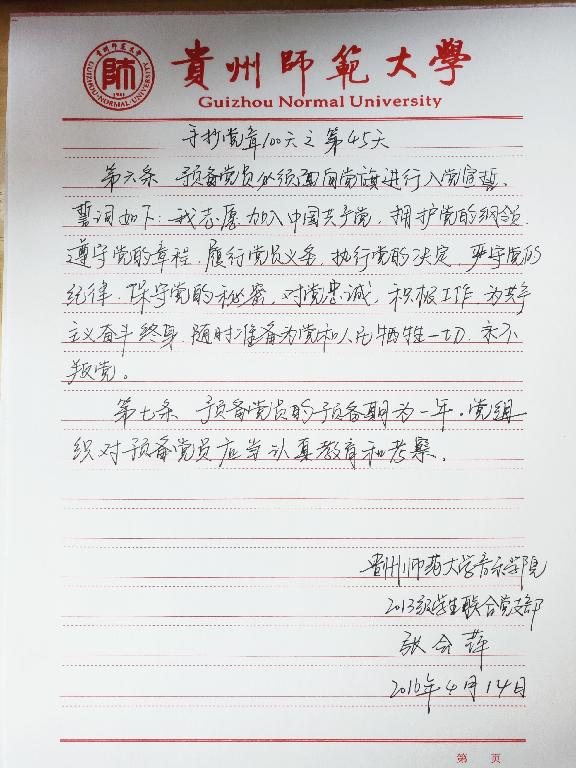 貴州師範大學
Guizhou Normal University
貴州師範大學
GUIZHOU·NORMAL·UNIVERSITY
師
1941
手抄党章100天之第45天
第六条 预备党员必须面向党旗进行入党宣誓。
誓词如下：我志愿加入中国共产党，拥护党的纲领
遵守党的章程，履行党员义务，执行党的决定，严守党的
纪律，保守党的秘密，对党忠诚，积极工作，为共产
主义奋斗终身，随时准备为党和人民牺牲一切，永不
叛党。
第七条 预备党员的预备期为一年。党组
织对预备党员应当认真教育和考察。
贵州师范大学音乐学院
2013级学生联合党支部
张会萍
2016年4月14日
第 页